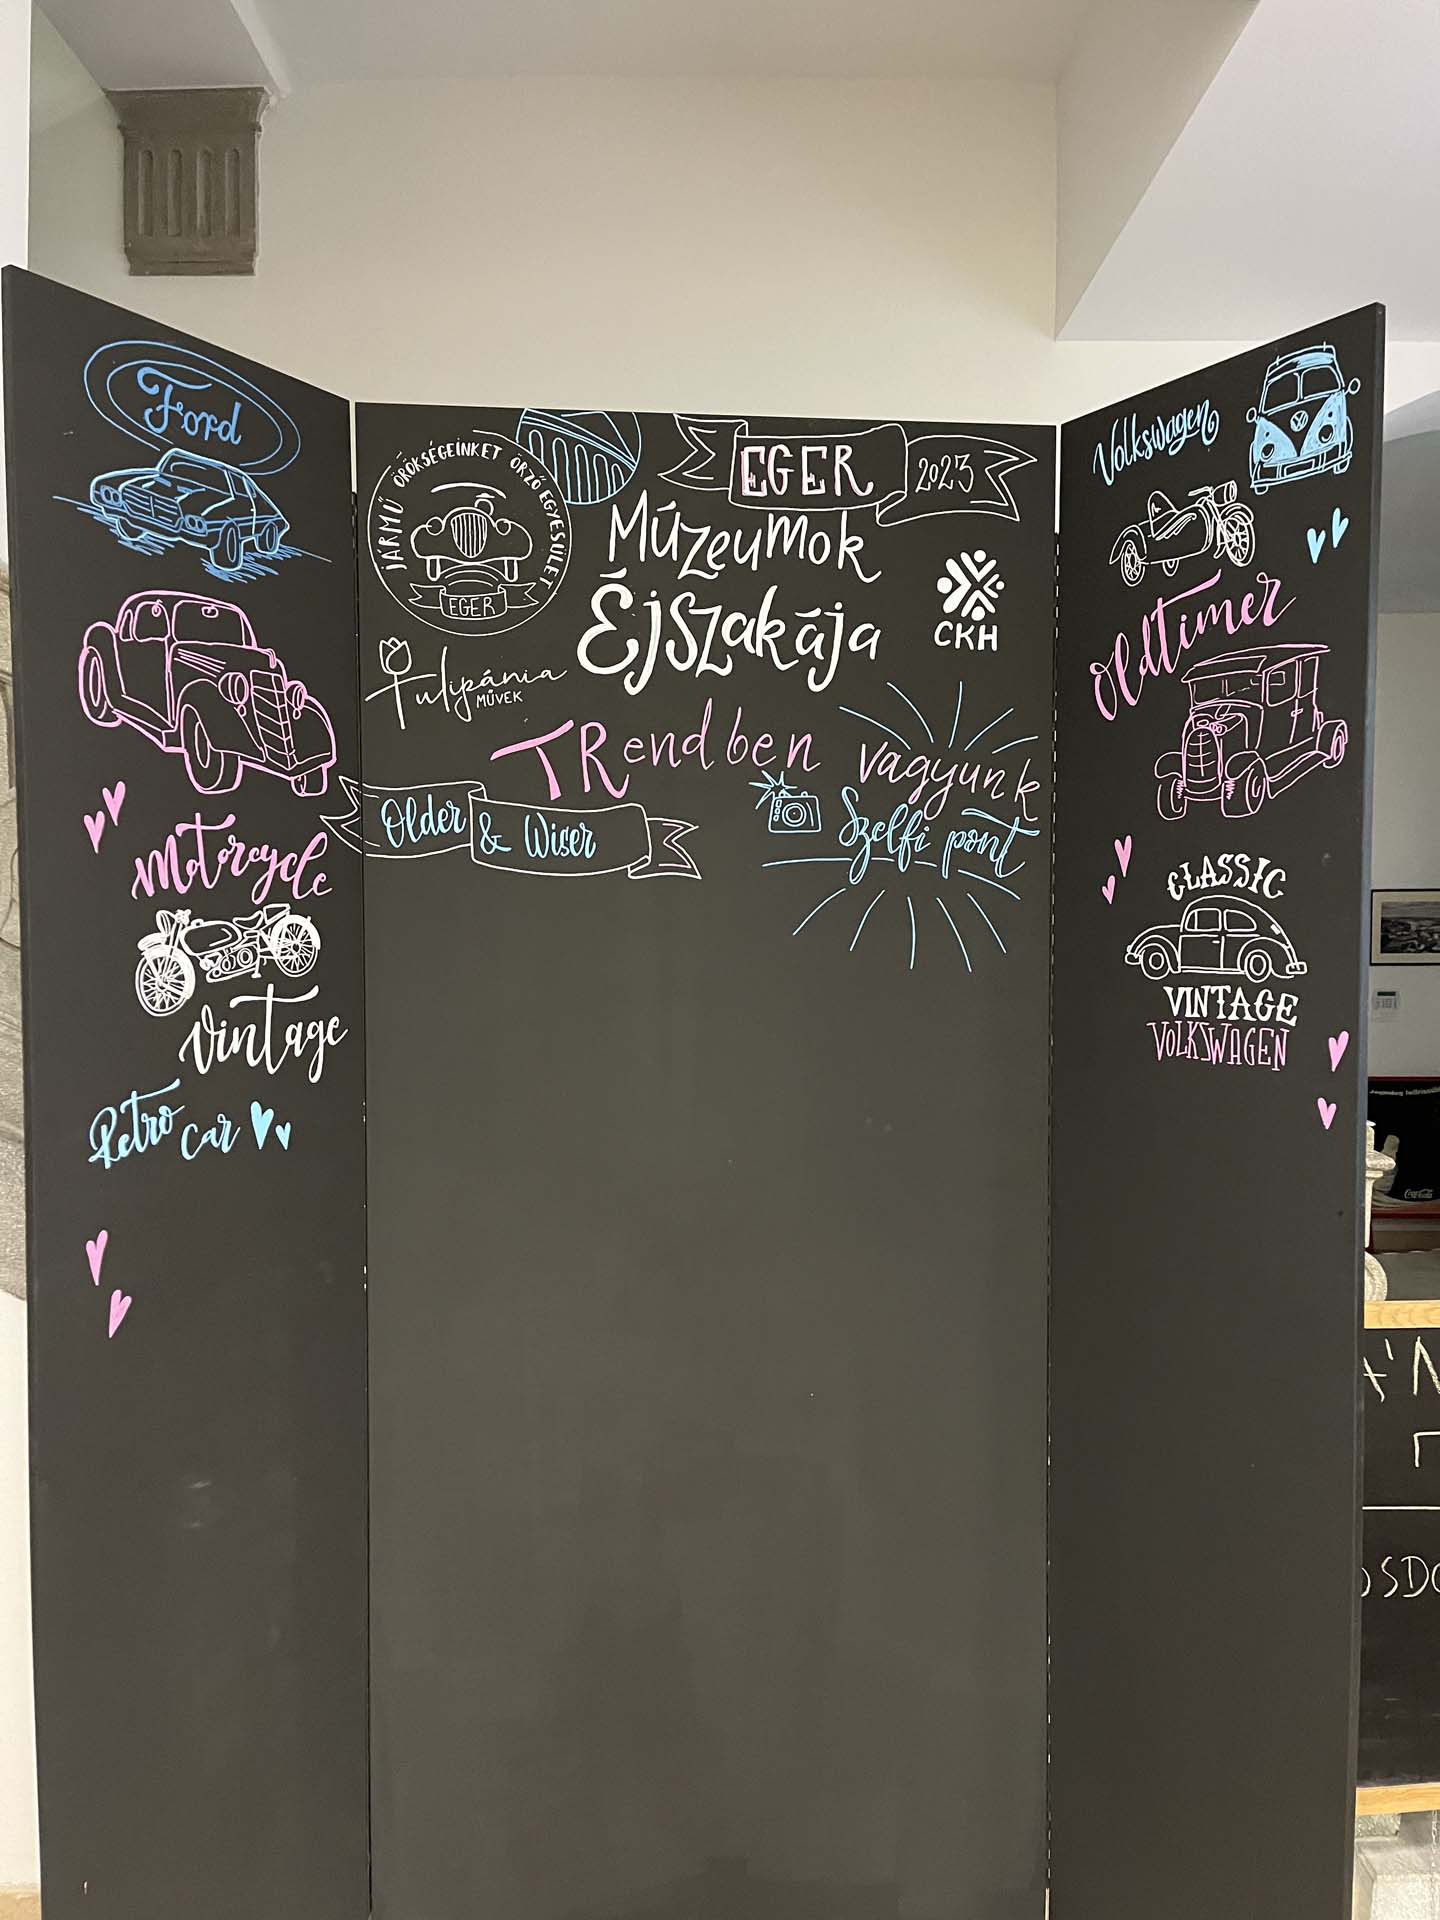 Ford
Motorcycle
Vintage
Retro car
JÁRMŰ ÖRÖKSÉGEINKET ŐRZŐ EGYESÜLET
EGER
Tulipánia
MŰVEK
EGER 2023
Múzeumok
Éjszakája
CKH
TRendben vagyunk
Older & Wiser
Szelfi pont
Volkswagen
Oldtimer
CLASSIC
VINTAGE
VOLKSWAGEN
Coca-Cola